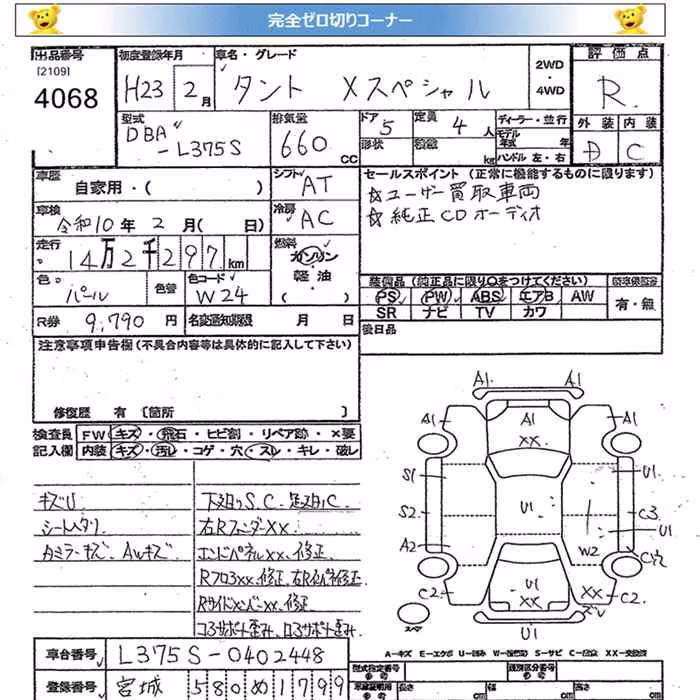 完全ゼロ切りコーナー
出品番号
[2109]
4068
初度登録年月
H23 2月
車名・グレード
タント Xスペシャル
2WD
・
4WD
評価点
R
外装 内装
D C
型式
DBA
-L375S
排気量
660
CC
ドア 5
形状
定員 4人
積載 kg
ディーラー・並行
モデル
年式 年
ハンドル 左・右
車歴
自家用・( )
シフト AT
車検
令和10年2月( 日)
冷房 AC
セールスポイント (正常に機能するものに限ります)
☆ユーザー買取車両
☆純正CDオーディオ
走行
14万2千297km
燃料
ガソリン
軽・油
( )
色
パール
色替
色コード
W24
装備品 (純正品に限り○をつけてください)
PS PW ABS エアB AW
SR ナビ TV カワ
有・無
R券 9,790円
名変通知期限 月 日
後日品
注意事項申告欄 (不具合内容等は具体的に記入して下さい)
修復歴 有 [箇所 ]
検査員
記入欄
FW キズ・飛石・ヒビ割・リペア跡・×要
内装 キズ・汚レ・コゲ・穴・スレ・キレ・破レ
キズU
シートヘタリ
カミラーキズ、AWキズ
下廻りS.C. 足廻りC
右RフェンダーXX
エンドパネルXX、修正
RフロアXX.修正、
RサイドメンバーXX、修正
A1 A1
A1 A1 A1
XX
S1 U1
S2 U1 C3
U1
A2 W2 C穴
C2 U1 XX C2
XX
U1
スペア
A-キズ E-エクボ U-凹み W-波補修 S-サビ C-腐食 XX-交換済
車台番号
L375S-0402448
登録番号
宮城 580 め 1799
型式指定番号
参考
類別区分番号
参考
長さ cm
幅 cm
高さ cm